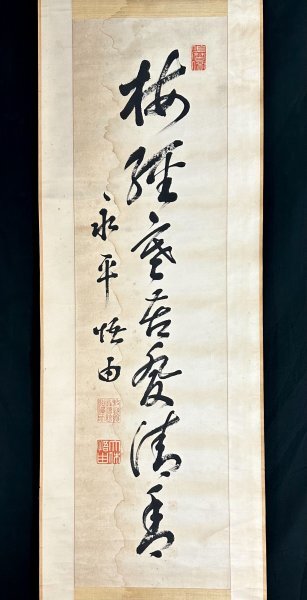 梅經寒苦發清香
永平悟由